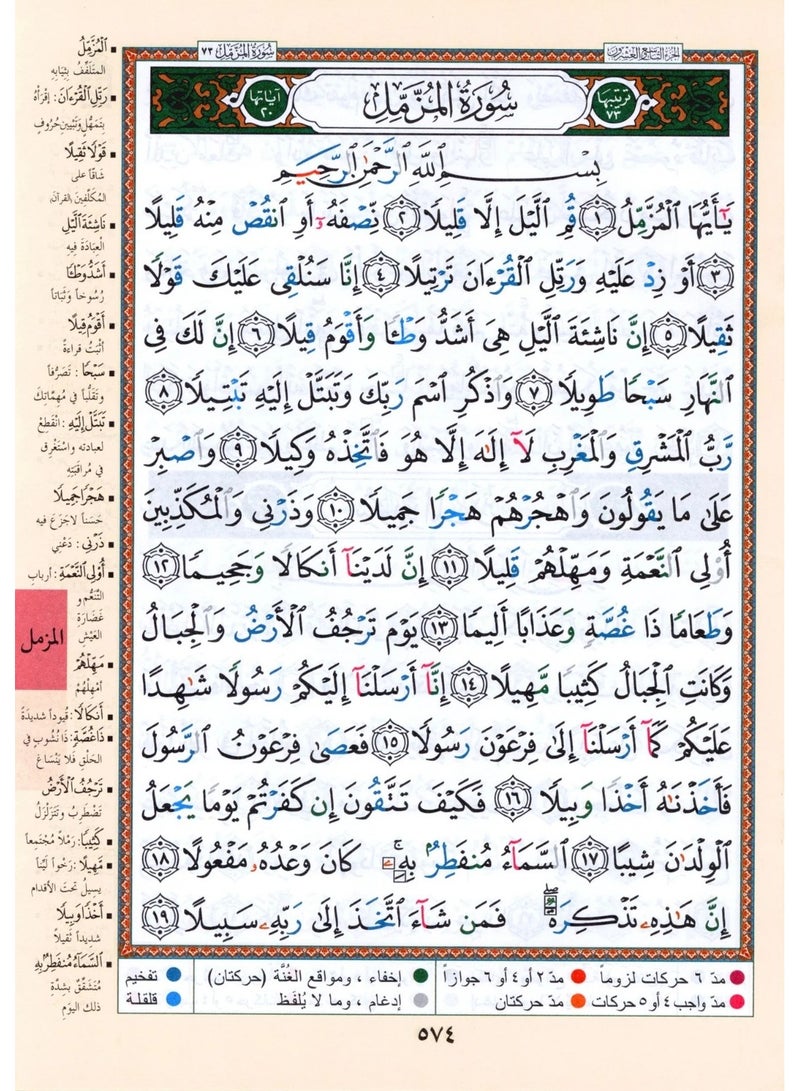 الجزء التاسع والعشرون
سورة المزمل ٧٣
ترتيبها ٧٣
سُورَةُ المُزَّمِّل
آياتها ٢٠
بِسْمِ ٱللَّهِ ٱلرَّحْمَٰنِ ٱلرَّحِيمِ
يَـٰٓأَيُّهَا ٱلْمُزَّمِّلُ ١ قُمِ ٱلَّيْلَ إِلَّا قَلِيلًا ٢ نِّصْفَهُۥٓ أَوِ ٱنقُصْ مِنْهُ قَلِيلًا
٣ أَوْ زِدْ عَلَيْهِ وَرَتِّلِ ٱلْقُرْءَانَ تَرْتِيلًا ٤ إِنَّا سَنُلْقِى عَلَيْكَ قَوْلًا
ثَقِيلًا ٥ إِنَّ نَاشِئَةَ ٱلَّيْلِ هِىَ أَشَدُّ وَطْـًٔا وَأَقْوَمُ قِيلًا ٦ إِنَّ لَكَ فِى
ٱلنَّهَارِ سَبْحًا طَوِيلًا ٧ وَٱذْكُرِ ٱسْمَ رَبِّكَ وَتَبَتَّلْ إِلَيْهِ تَبْتِيلًا ٨
رَّبُّ ٱلْمَشْرِقِ وَٱلْمَغْرِبِ لَآ إِلَٰهَ إِلَّا هُوَ فَٱتَّخِذْهُ وَكِيلًا ٩ وَٱصْبِرْ
عَلَىٰ مَا يَقُولُونَ وَٱهْجُرْهُمْ هَجْرًا جَمِيلًا ١٠ وَذَرْنِى وَٱلْمُكَذِّبِينَ
أُو۟لِى ٱلنَّعْمَةِ وَمَهِّلْهُمْ قَلِيلًا ١١ إِنَّ لَدَيْنَآ أَنكَالًا وَجَحِيمًا ١٢
وَطَعَامًا ذَا غُصَّةٍ وَعَذَابًا أَلِيمًا ١٣ يَوْمَ تَرْجُفُ ٱلْأَرْضُ وَٱلْجِبَالُ
وَكَانَتِ ٱلْجِبَالُ كَثِيبًا مَّهِيلًا ١٤ إِنَّآ أَرْسَلْنَآ إِلَيْكُمْ رَسُولًا شَـٰهِدًا
عَلَيْكُمْ كَمَآ أَرْسَلْنَآ إِلَىٰ فِرْعَوْنَ رَسُولًا ١٥ فَعَصَىٰ فِرْعَوْنُ ٱلرَّسُولَ
فَأَخَذْنَـٰهُ أَخْذًا وَبِيلًا ١٦ فَكَيْفَ تَتَّقُونَ إِن كَفَرْتُمْ يَوْمًا يَجْعَلُ
ٱلْوِلْدَٰنَ شِيبًا ١٧ ٱلسَّمَآءُ مُنفَطِرٌۢ بِهِۦ ۚ كَانَ وَعْدُهُۥ مَفْعُولًا ١٨
إِنَّ هَـٰذِهِۦ تَذْكِرَةٌ ۖ فَمَن شَآءَ ٱتَّخَذَ إِلَىٰ رَبِّهِۦ سَبِيلًا ١٩
▪ ٱلْمُزَّمِّلُ
المتَلَفِّفُ بِثِيَابِهِ
▪ رَتِّلِ ٱلْقُرْءَانَ : اقرَأْهُ
بِتَمَهُّلٍ وَتَبْيِينِ حُرُوفٍ
▪ قَوْلًا ثَقِيلًا
شَاقّاً على
المُكَلَّفِينَ القرآن
▪ نَاشِئَةَ ٱلَّيْلِ
العِبَادَةَ فِيهِ
▪ أَشَدُّ وَطْـًٔا
رُسُوخاً وَثَبَاتاً
▪ أَقْوَمُ قِيلًا
أَثْبَتُ قراءةً
▪ سَبْحًا : تَصَرُّفاً
وتَقَلُّباً في مهمّاتِكَ
▪ تَبَتَّلْ إِلَيْهِ : انْقَطِعْ
لعبادته واسْتَغْرِق
في مُرَاقَبَتِهِ
▪ هَجْرًا جَمِيلًا
حَسَناً لاجَزَعَ فيه
▪ ذَرْنِى : دَعْنِي
▪ أُو۟لِى ٱلنَّعْمَةِ : أربابَ
التَّنَعُّم و
غَضَارَةِ
العَيْشِ
▪ مَهِّلْهُمْ
أَمْهِلْهُمْ
▪ أَنكَالًا : قُيوداً شديدَةً
▪ ذَا غُصَّةٍ : ذَا نُشُوبٍ في
الحَلْقِ فَلا يَنْسَاغُ
▪ تَرْجُفُ ٱلْأَرْضُ
تَضْطَرِبُ وتَتَزَلْزَلُ
▪ كَثِيبًا : رَمْلاً مُجْتَمِعاً
▪ مَهِيلًا : رَخْواً لَيِّناً
يسِيلُ تحتَ الأقدام
▪ أَخْذًا وَبِيلًا
شديداً ثقيلاً
▪ ٱلسَّمَآءُ مُنفَطِرٌۢ بِهِ
مُتَشَقِّقٌ بِشِدَّةِ
ذلك اليَومِ
المزمل
مدّ ٦ حركات لزوماً مدّ ٢ أو ٤ أو ٦ جوازاً إخفاء ، ومواقع الغُنَّة (حركتان) تفخيم
مدّ واجب ٤ أو ٥ حركات مدّ حركتان إدغام ، وما لا يُلفَظ قلقلة
٥٧٤